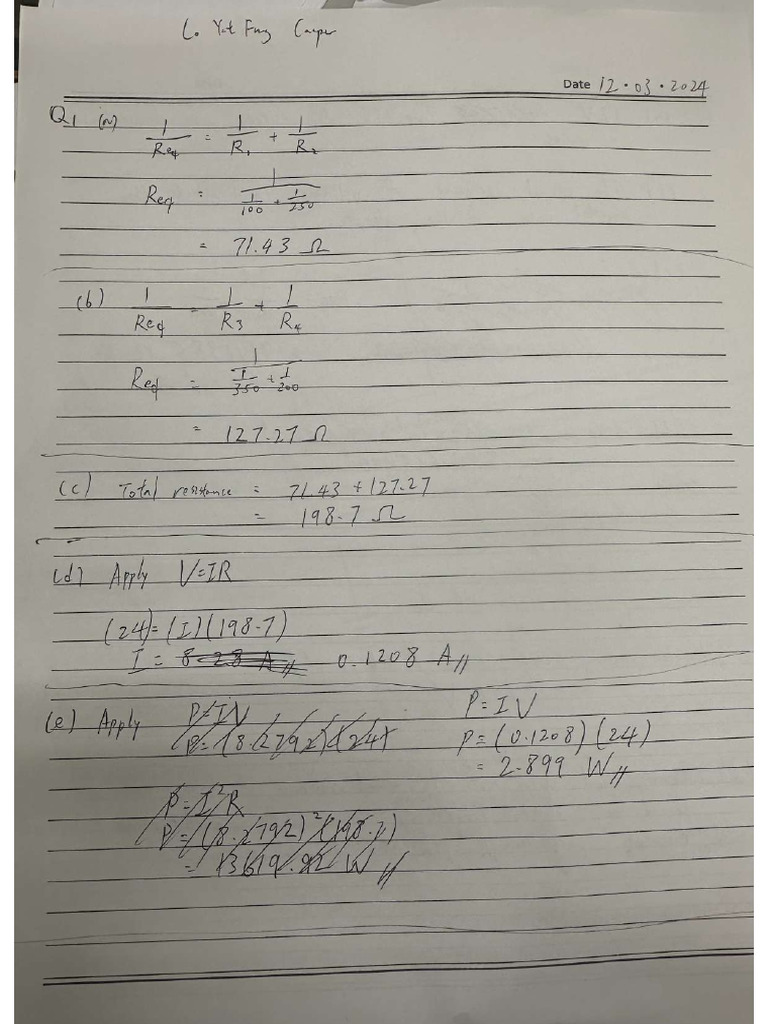 Lo Yat Fung Casper
Date 12.03.2024
Q1 (a) 1/Req = 1/R1 + 1/R2
Req = 1/(1/100 + 1/250)
= 71.43 Ω
(b) 1/Req = 1/R3 + 1/R4
Req = 1/(1/350 + 1/200)
= 127.27 Ω
(c) Total resistance = 71.43 + 127.27
= 198.7 Ω
(d) Apply V=IR
(24)=(I)(198.7)
I = 8.28 A // 0.1208 A //
(e) Apply P=IV
P=(8.2792)(24)
P=I²R
P=(8.2792)²(198.7)
=13619.92 W //
P=IV
P=(0.1208)(24)
= 2.899 W //